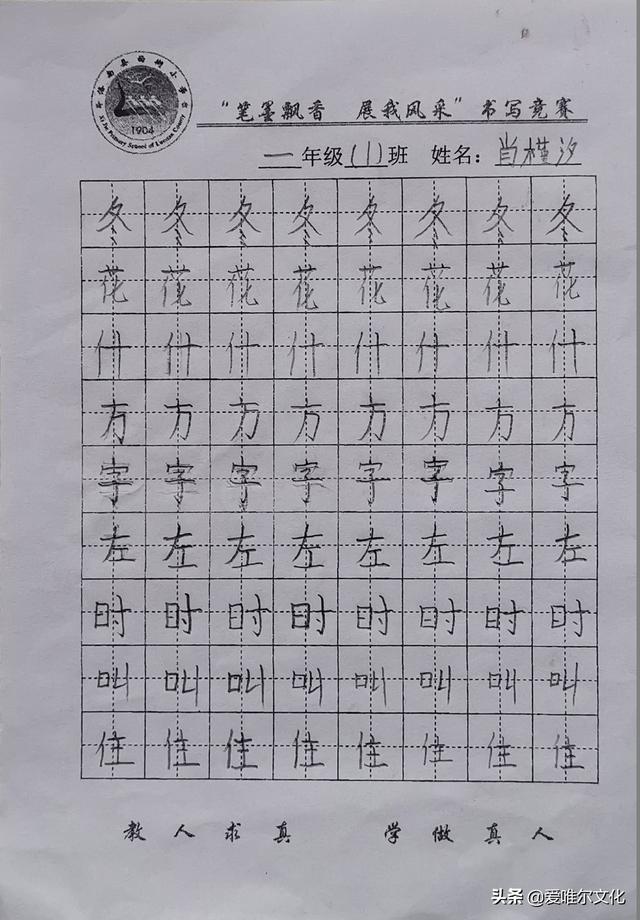 1904
“笔墨飘香 展我风采”书写竞赛
一年级(1)班 姓名：肖槿汐
冬冬冬冬冬冬冬冬
花花花花花花花花
什什什什什什什什
方方方方方方方方
字字字字字字字字
左左左左左左左左
时时时时时时时时
叫叫叫叫叫叫叫叫
住住住住住住住住
教人求真 学做真人
头条 @爱唯尔文化